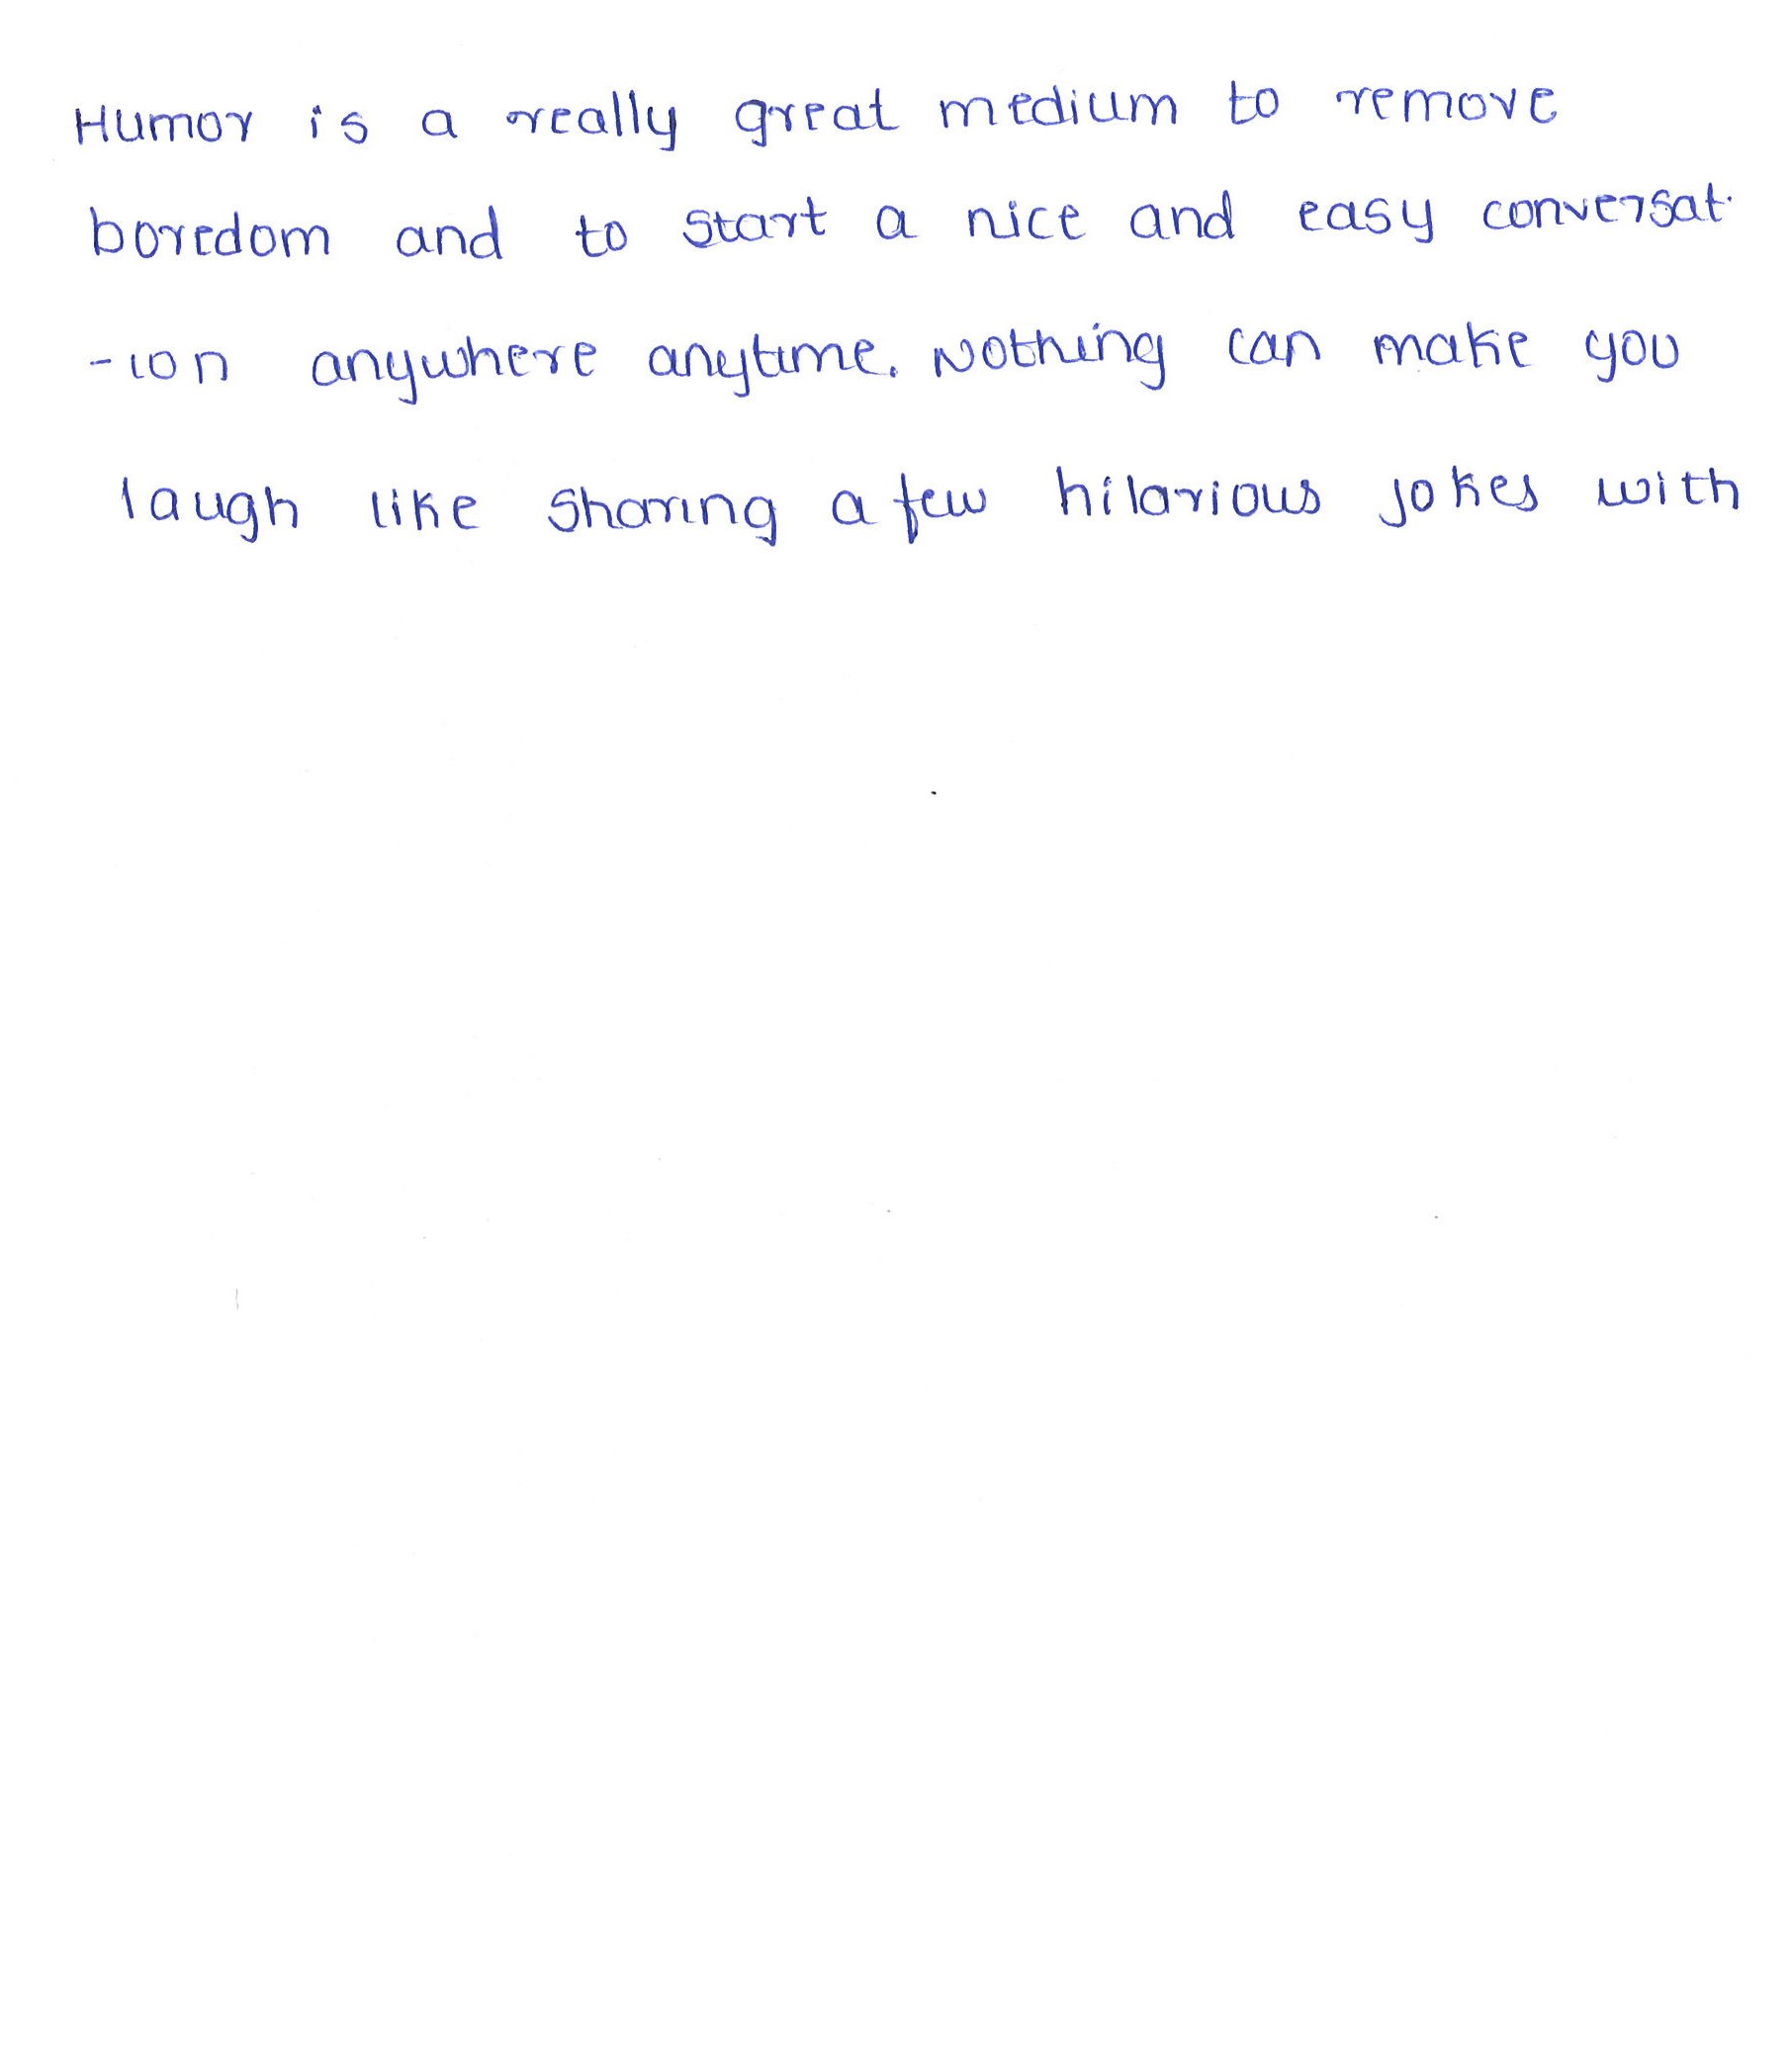 Humor is a really great medium to remove
boredom and to start a nice and easy conversat-
-ion anywhere anytime. Nothing can make you
laugh like sharing a few hilarious jokes with